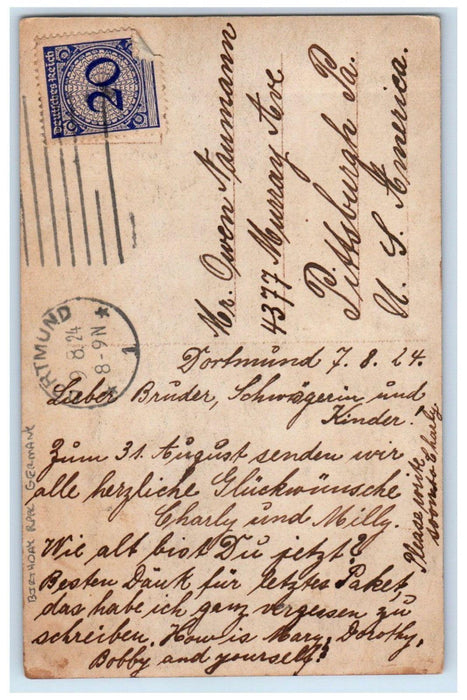 Deutsches Reich
20
DORTMUND
9.8.24
8-9N
1
Mr. Owen Naumann
4377 Murray Ave
Pittsburgh Pa.
U. S. America.
Dortmund 7. 8. 24.
Lieber Bruder, Schwägerin und
Kinder!
Zum 31. August senden wir
alle herzliche Glückwünsche
Charly und Milly.
Wie alt bist Du jetzt?
Besten Dank für letztes Paket,
das habe ich ganz vergessen zu
schreiben. How is Mary, Dorothy,
Bobby and yourself?
Please write
soon to Charly
BIRTHDAY RPPC GERMANY